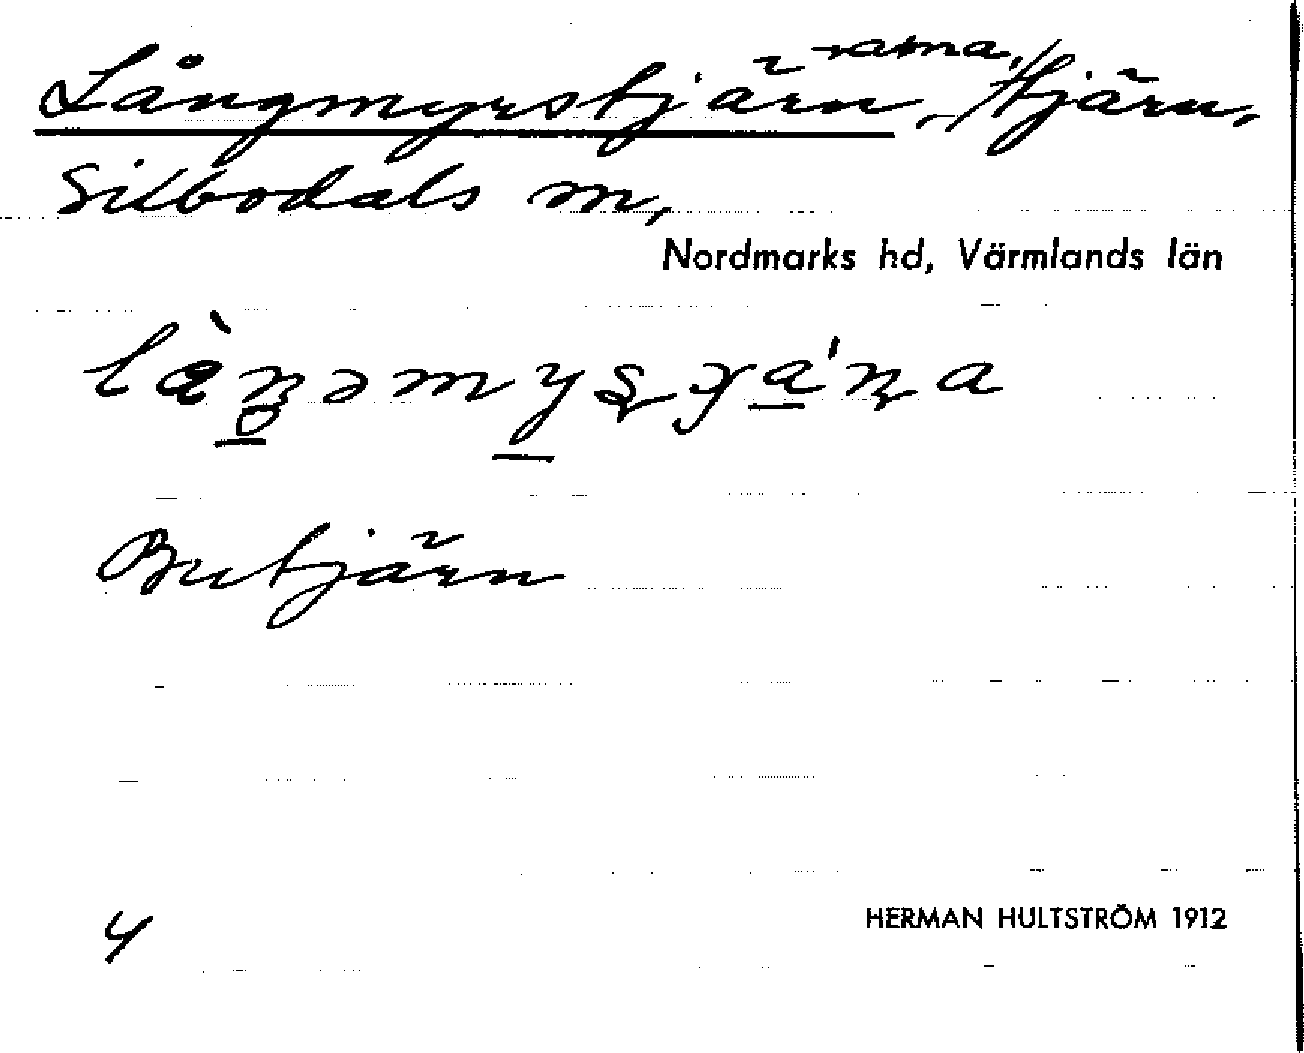 Långmyrstjärnarna, tjärn,
Silbodals sn,
Nordmarks hd, Värmlands län
Butjärn
4
HERMAN HULTSTRÖM 1912